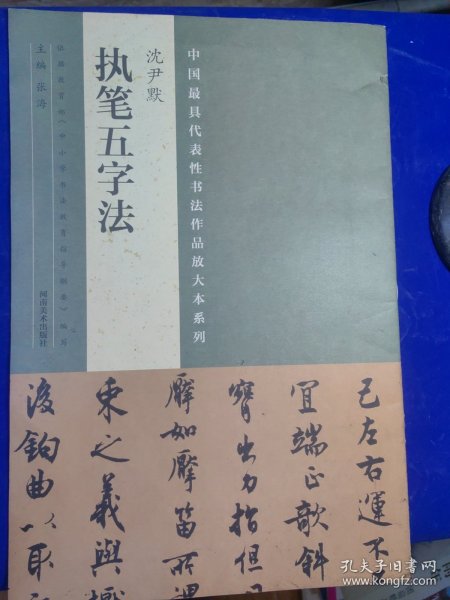 中国最具代表性书法作品放大本系列
沈尹默
执笔五字法
依据教育部《中小学书法教育指导纲要》编写
主编 张海
河南美术出版社
己左右运不
宜端正欹斜
实出力指但
擪如擪笛所谓
束之义与
后钩曲以取
孔夫子旧书网
www.kongfz.com